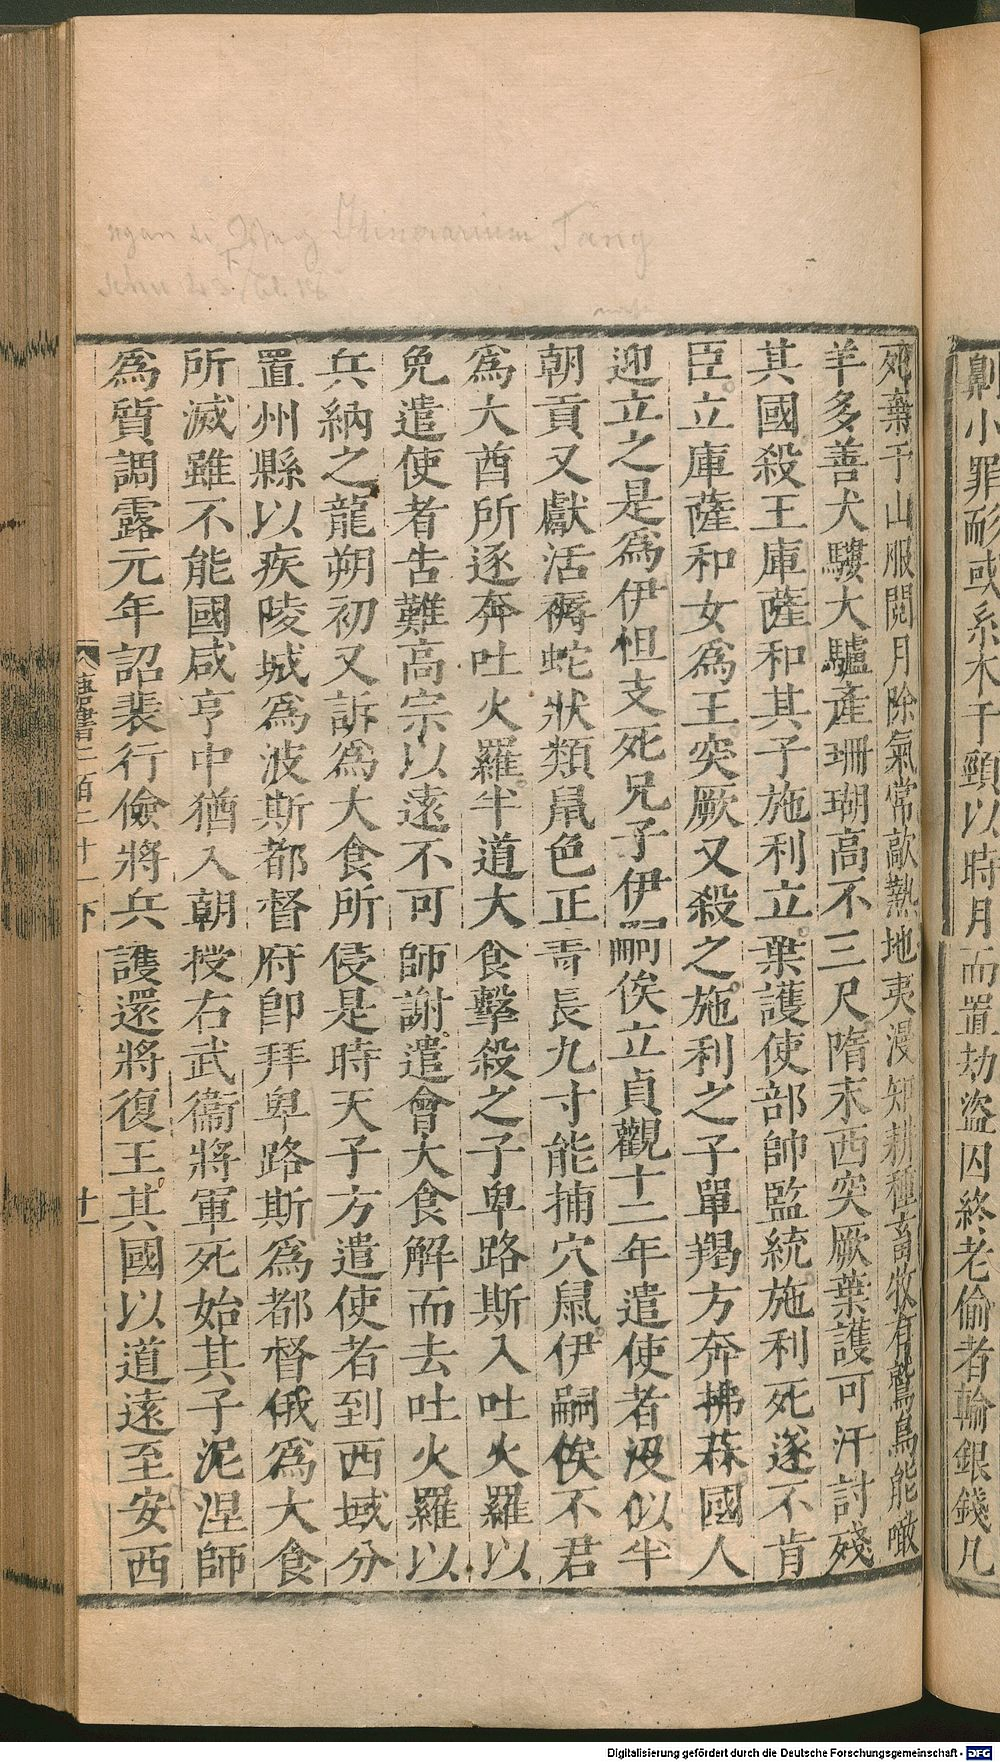 劓小罪耐或系木于頸以時月而置劫盜囚終老偷者輸銀錢凡
死棄于山服閱月除氣常歊熱地夷漫知耕種畜牧有鷲鳥能噉
羊多善犬騾大驢產珊瑚高不三尺隋末西突厥葉護可汗討殘
其國殺王庫薩和其子施利立葉護使部帥監統施利死遂不肯
臣立庫薩和女為王突厥又殺之施利之子單羯方奔拂菻國人
迎立之是為伊怛支死兄子伊嗣俟立貞觀十二年遣使者沒似半
朝貢又獻活褥蛇狀類鼠色正青長九寸能捕穴鼠伊嗣俟不君
為大酋所逐奔吐火羅半道大食擊殺之子卑路斯入吐火羅以
免遣使者告難高宗以遠不可師謝遣會大食解而去吐火羅以
兵納之龍朔初又訴為大食所侵是時天子方遣使者到西域分
置州縣以疾陵城為波斯都督府即拜卑路斯為都督俄為大食
所滅雖不能國咸亨中猶入朝授右武衞將軍死始其子泥涅師
為質調露元年詔裴行儉將兵護還將復王其國以道遠至安西
唐書二百二十一下
十一
Itinerarium Tang
Digitalisierung gefördert durch die Deutsche Forschungsgemeinschaft - DFG